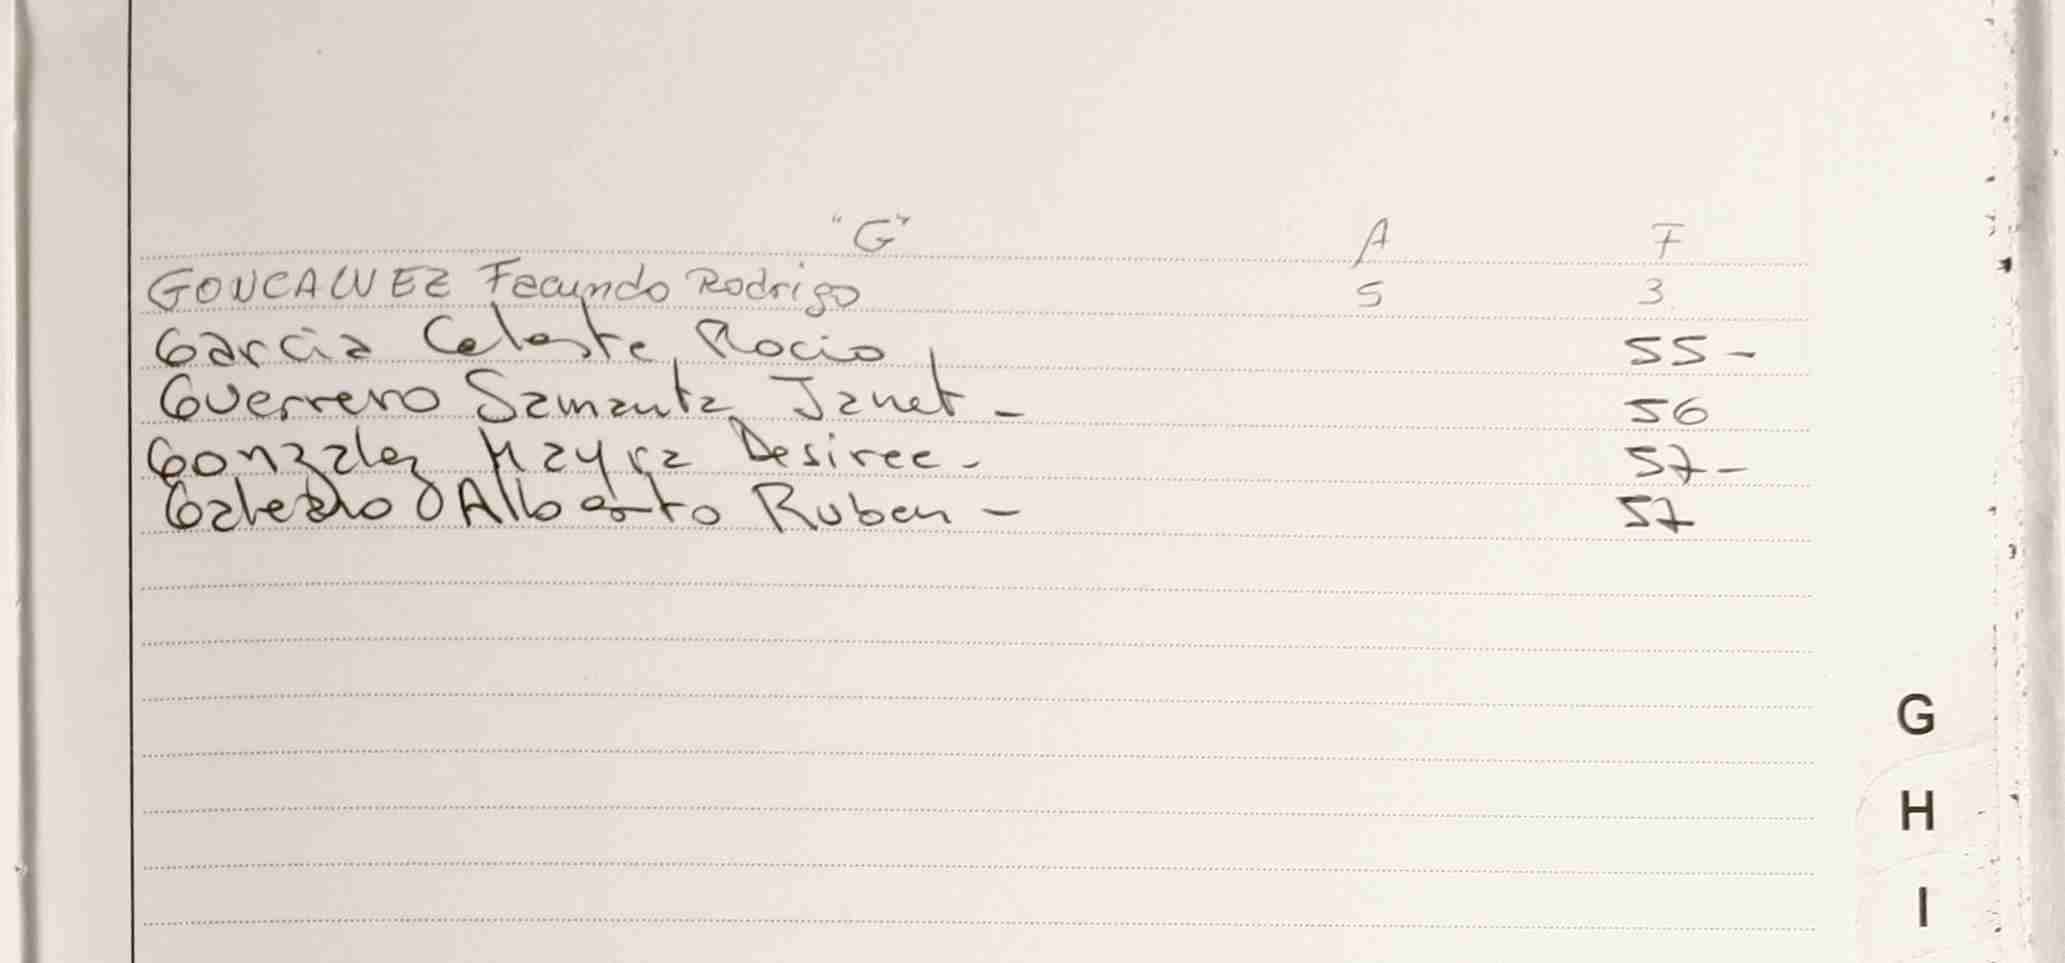 "G" A F
GONCALVEZ Facundo Rodrigo 5 3
Garcia Celeste Rocio 55-
Guerrero Samanta Janet - 56
Gonzalez Mayra Desiree - 57-
Alberto Ruben - 57
G
H
I